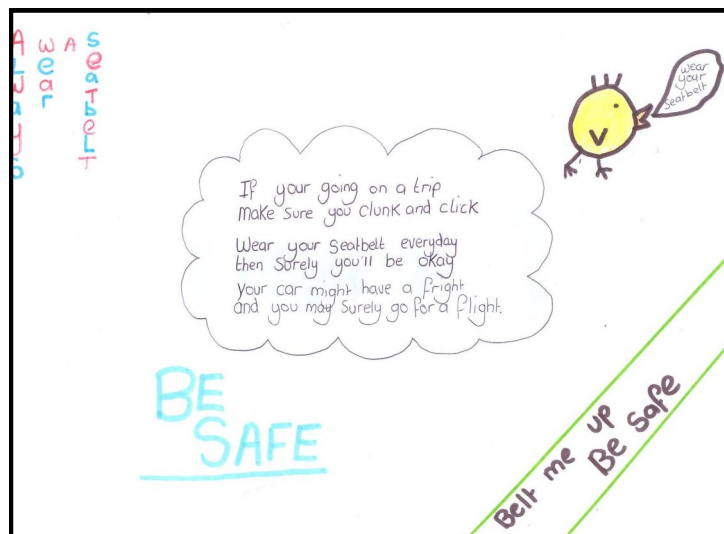 Always
wear
A
SeaTbeLT
wear
your
seatbelt
If your going on a trip
make sure you clunk and click
Wear your Seatbelt everyday
then Surely you'll be okay
Your car might have a fright
and you may Surely go for a flight.
BE
SAFE
Belt me up
Be Safe